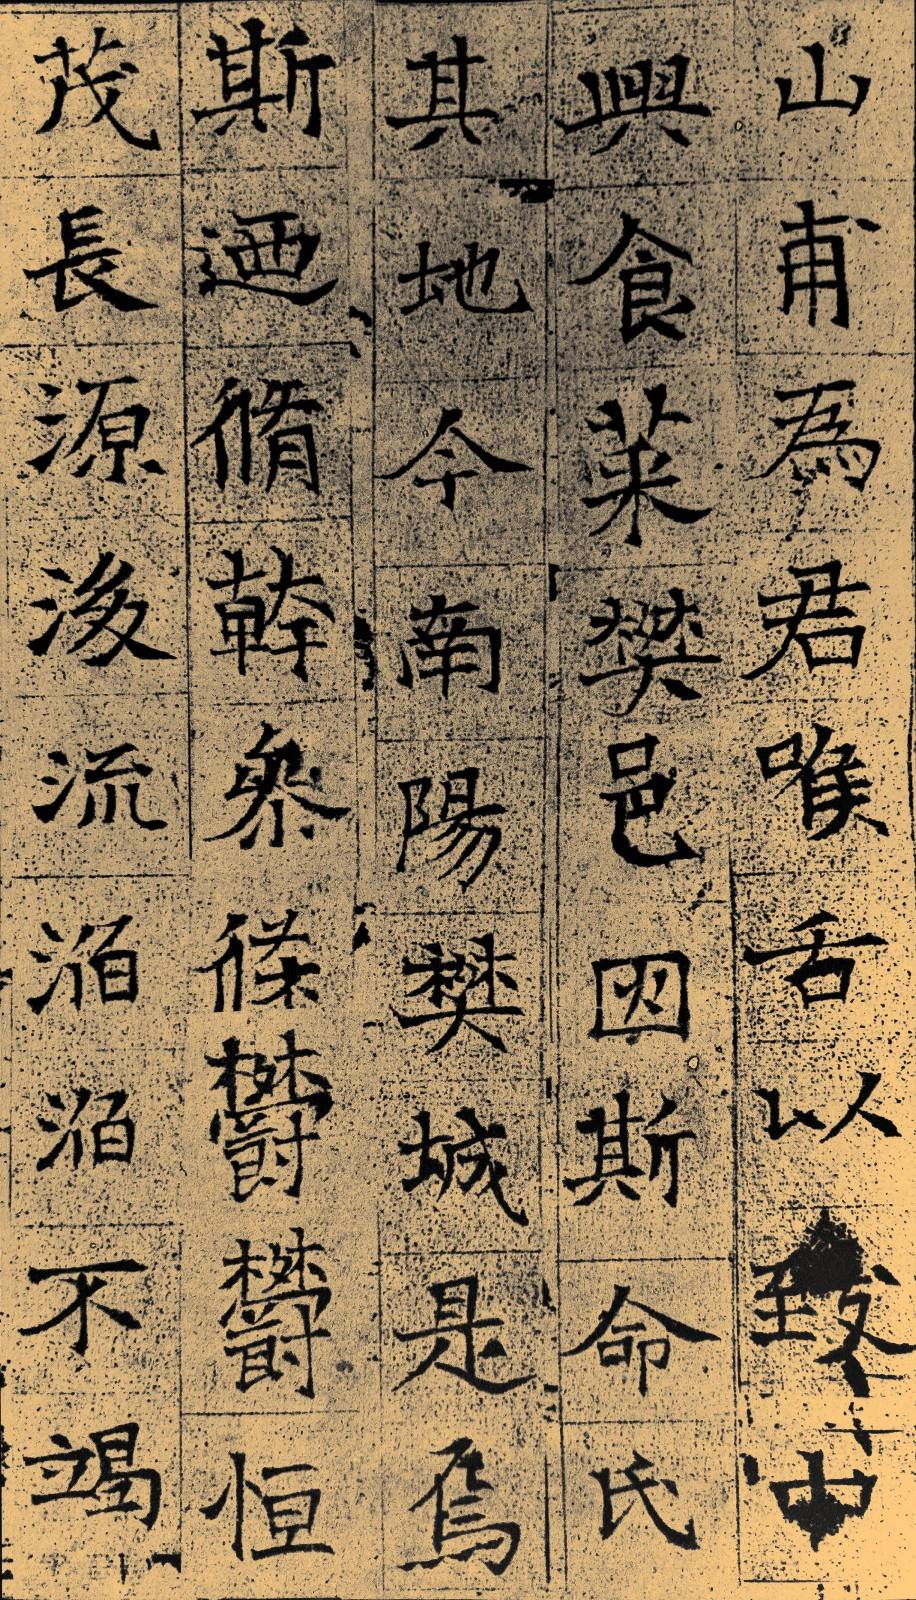 山甫為君喉舌以致中
興食菜樊邑因斯命氏
其地今南陽樊城是焉
斯迺脩幹叅條欝欝恒
茂長源浚流滔滔不竭